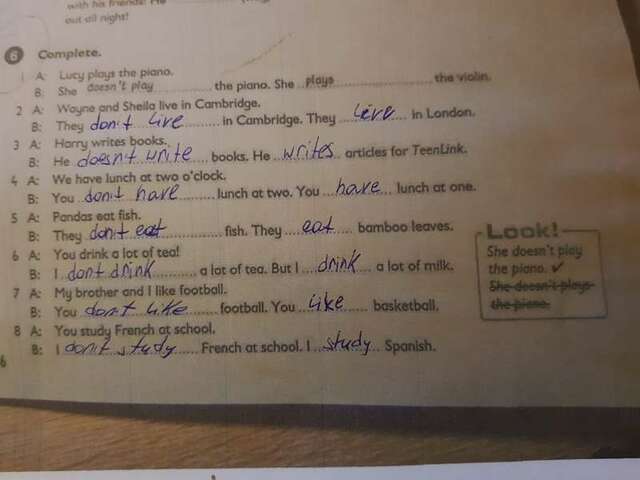 out all night!
6 Complete.
1 A: Lucy plays the piano.
B: She doesn't play the piano. She plays the violin.
2 A: Wayne and Sheila live in Cambridge.
B: They don't live in Cambridge. They live in London.
3 A: Harry writes books.
B: He doesn't write books. He writes articles for TeenLink.
4 A: We have lunch at two o'clock.
B: You don't have lunch at two. You have lunch at one.
5 A: Pandas eat fish.
B: They don't eat fish. They eat bamboo leaves.
6 A: You drink a lot of tea!
B: I don't drink a lot of tea. But I drink a lot of milk.
7 A: My brother and I like football.
B: You don't like football. You like basketball.
8 A: You study French at school.
B: I don't study French at school. I study Spanish.
Look!
She doesn't play
the piano. ✓
She doesn't plays
the piano.
6